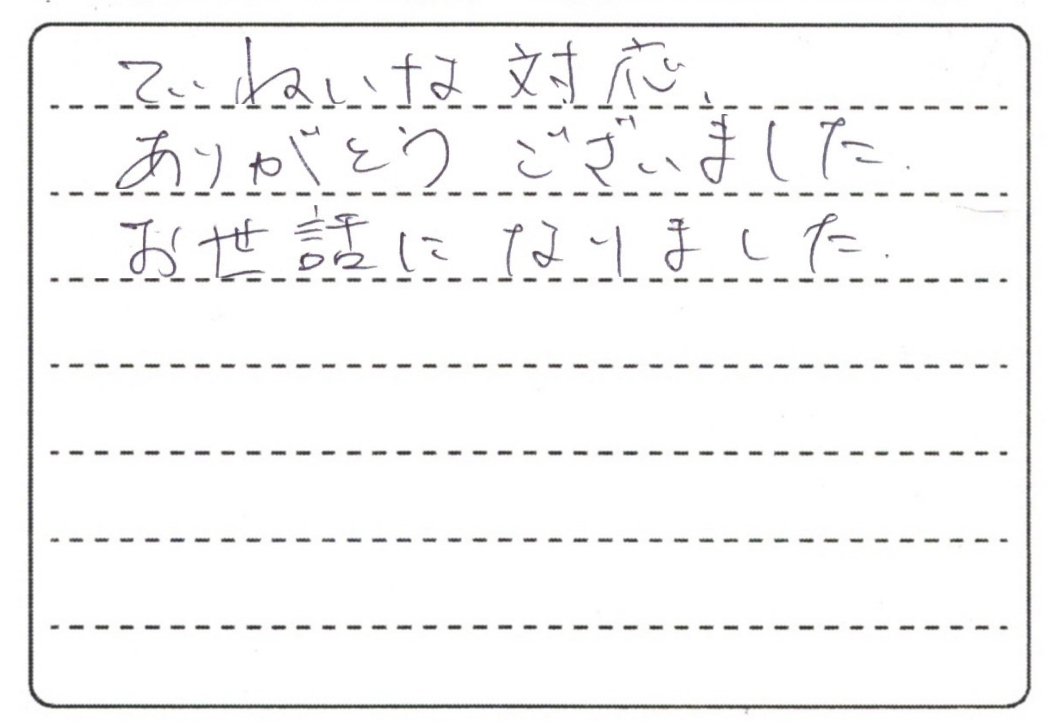 ていねいな対応、
ありがとうございました.
お世話になりました.